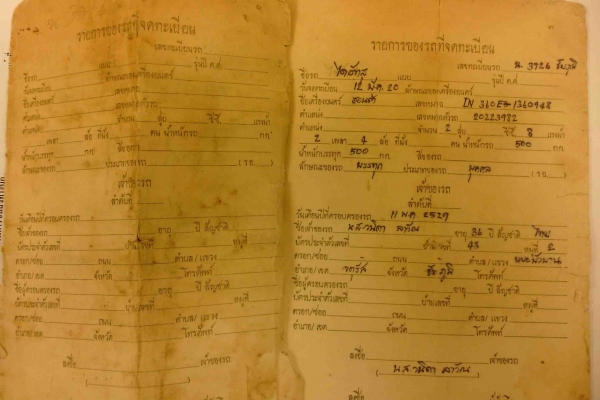 รายการของรถที่จดทะเบียน
เลขทะเบียนรถ
ชื่อรถ แบบ รุ่นปี ค.ศ.
วันจดทะเบียน ลักษณะของเครื่องยนต์
ชื่อเครื่องยนต์ เลขหน่วย
ตำแหน่ง เลขหมายตัวรถ
ตำแหน่ง จำนวน สูบ ซี.ซี. แรงม้า
เพลา ล้อ ที่นั่ง คน น้ำหนักรถ กก.
น้ำหนักบรรทุก กก. สีของรถ
ลักษณะของรถ ประเภทของรถ (รย. )
เจ้าของรถ
ลำดับที่
วันเดือนปีที่ครอบครองรถ
ชื่อเจ้าของรถ อายุ ปี สัญชาติ
บัตรประจำตัวเลขที่ บ้านเลขที่ หมู่ที่
ตรอก/ซอย ถนน ตำบล/แขวง
อำเภอ/เขต จังหวัด โทรศัพท์
ชื่อผู้ครอบครองรถ อายุ ปี สัญชาติ
บัตรประจำตัวเลขที่ บ้านเลขที่ หมู่ที่
ตรอก/ซอย ถนน ตำบล/แขวง
อำเภอ/เขต จังหวัด โทรศัพท์
ลงชื่อ เจ้าของรถ
( )
รายการของรถที่จดทะเบียน
เลขทะเบียนรถ น. 3926 ชัยภูมิ
ชื่อรถ ไดฮัทสุ แบบ รุ่นปี ค.ศ.
วันจดทะเบียน 12 20 ลักษณะของเครื่องยนต์
ชื่อเครื่องยนต์ เลขหน่วย 1360948
ตำแหน่ง เลขหมายตัวรถ 20223982
ตำแหน่ง จำนวน 2 สูบ ซี.ซี. 8 แรงม้า
2 เพลา 4 ล้อ ที่นั่ง คน น้ำหนักรถ 500 กก.
น้ำหนักบรรทุก 500 กก. สีของรถ
ลักษณะของรถ บรรทุก ประเภทของรถ บุคคล (รย. )
เจ้าของรถ
ลำดับที่
วันเดือนปีที่ครอบครองรถ 11 พ.ค. 2529
ชื่อเจ้าของรถ อายุ 36 ปี สัญชาติ ไทย
บัตรประจำตัวเลขที่ บ้านเลขที่ 43 หมู่ที่ 2
ตรอก/ซอย ถนน ตำบล/แขวง
อำเภอ/เขต จตุรัส จังหวัด ชัยภูมิ โทรศัพท์
ชื่อผู้ครอบครองรถ อายุ ปี สัญชาติ
บัตรประจำตัวเลขที่ บ้านเลขที่ หมู่ที่
ตรอก/ซอย ถนน ตำบล/แขวง
อำเภอ/เขต จังหวัด โทรศัพท์
ลงชื่อ เจ้าของรถ